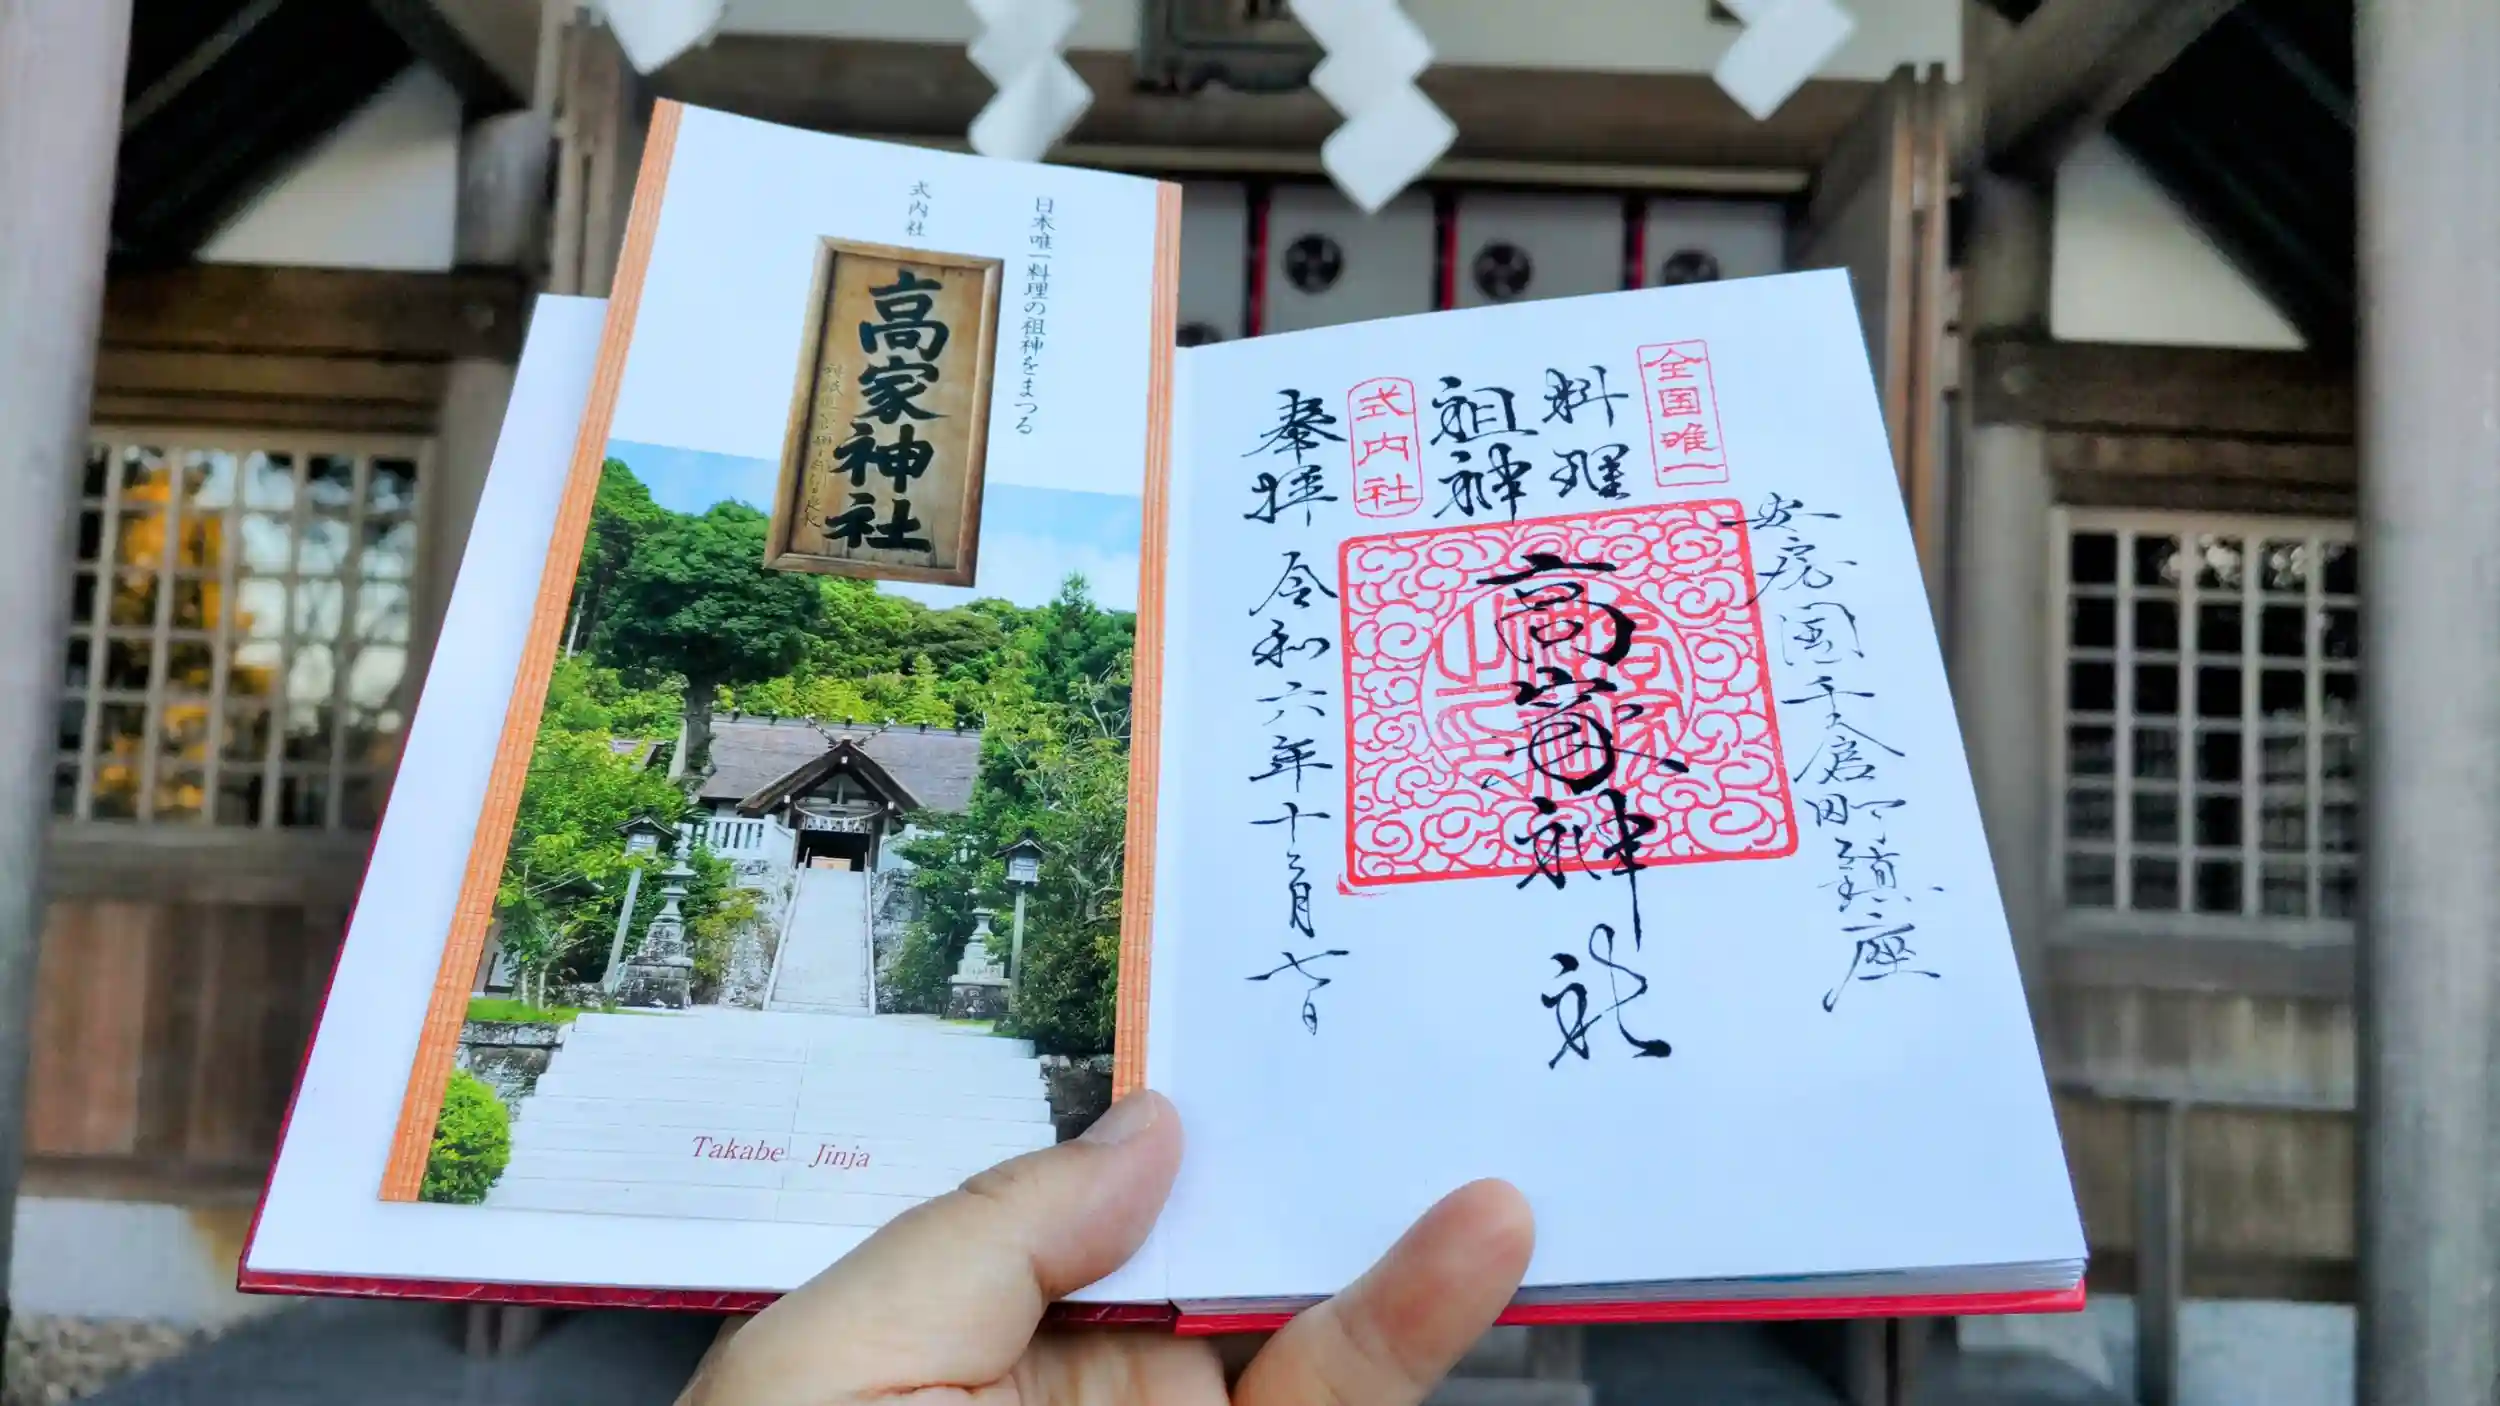 日本唯一料理の祖神をまつる
式内社
高家神社
Takabe Jinja
全国唯一
料理
祖神
式内社
奉拝
安房国千倉町鎮座
高家神社
令和六年十二月七日